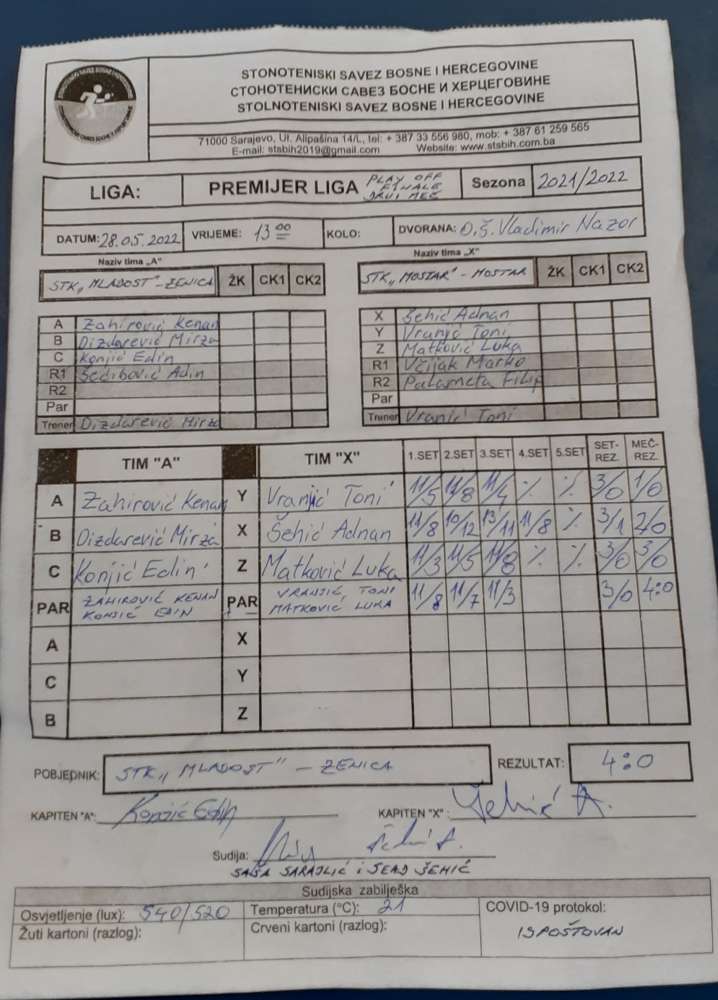 STONOTENISKI SAVEZ BOSNE I HERCEGOVINE
СТОНОТЕНИСКИ САВЕЗ БОСНЕ И ХЕРЦЕГОВИНЕ
STOLNOTENISKI SAVEZ BOSNE I HERCEGOVINE
71000 Sarajevo, Ul. Alipašina 14/L, tel: + 387 33 556 980, mob: + 387 61 259 565
E-mail: stsbih2019@gmail.com Website: www.stsbih.com.ba
LIGA: PREMIJER LIGA PLAY OFF FINALE DRUGI MEČ Sezona 2021/2022
DATUM: 28.05.2022 VRIJEME: 13 00 KOLO: DVORANA: O.Š. Vladimir Nazor
Naziv tima „A" Naziv tima „X"
STK „MLADOST" - ZENICA ŽK CK1 CK2 STK „MOSTAR" - MOSTAR ŽK CK1 CK2
A Zahirović Kenan X Šehić Adnan
B Dizdarević Mirza Y Vranjić Toni
C Konjić Edin Z Matković Luka
R1 Šećibović Adin R1 Včijak Marko
R2 R2 Palameta Filip
Par Par
Trener Dizdarević Mirza Trener Vranjić Toni
TIM "A" TIM "X" 1.SET 2.SET 3.SET 4.SET 5.SET SET-REZ. MEČ-REZ.
A Zahirović Kenan Y Vranjić Toni 11/5 11/8 11/4 % % 3/0 1/0
B Dizdarević Mirza X Šehić Adnan 11/8 10/12 13/11 11/8 % 3/1 2/0
C Konjić Edin Z Matković Luka 11/3 11/5 11/8 % % 3/0 3/0
PAR ZAHIROVIĆ KENAN KONJIĆ EDIN PAR VRANJIĆ TONI MATKOVIĆ LUKA 11/8 11/7 11/3 3/0 4:0
A X
C Y
B Z
POBJEDNIK: STK „MLADOST" - ZENICA REZULTAT: 4:0
KAPITEN "A": Konjić Edin KAPITEN "X": Šehić A.
Sudija:
SAŠA SARAJLIĆ i SEAD ŠEHIĆ
Sudijska zabilješka
Osvjetljenje (lux): 540/520 Temperatura (°C): 21 COVID-19 protokol:
Žuti kartoni (razlog): Crveni kartoni (razlog): ISPOŠTOVAN